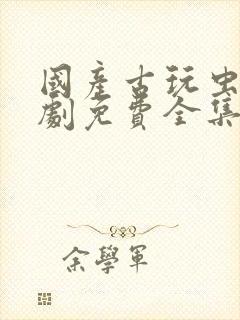 國產古玩虫
劇免費全集
余學軍